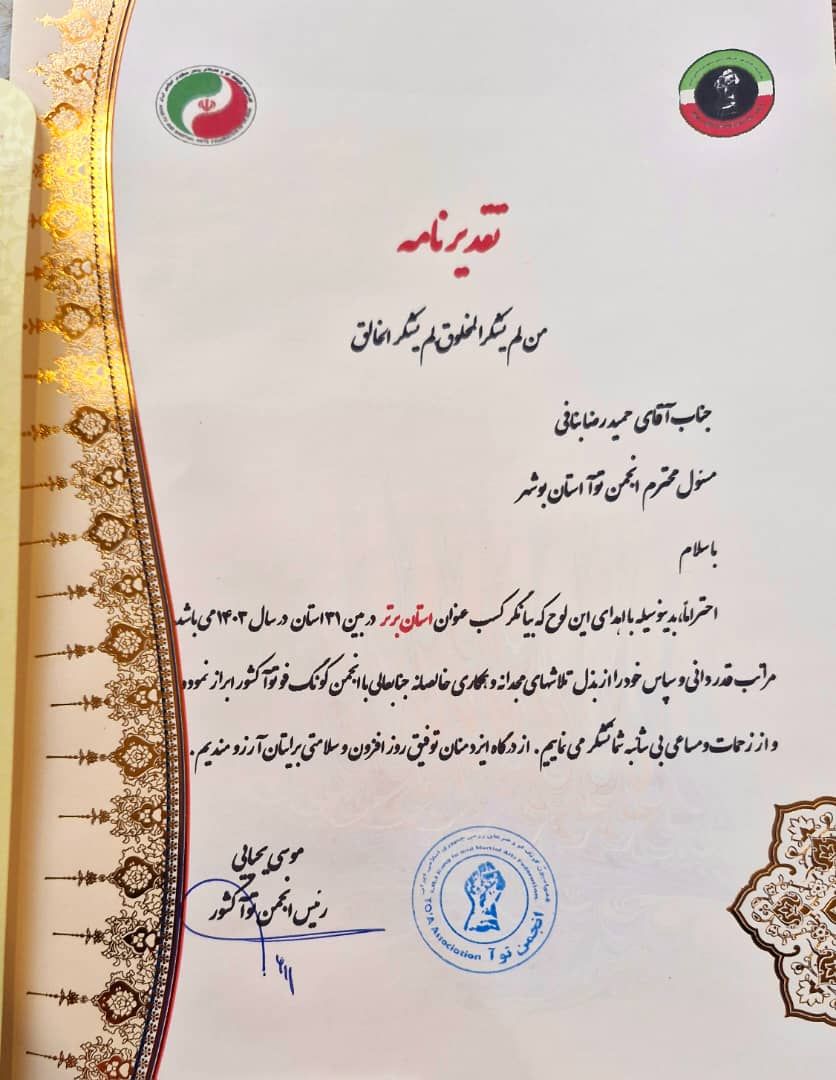 تقدیرنامه
من لم یشکر المخلوق لم یشکر الخالق
جناب آقای حمیدرضا بنافی
مسئول محترم انجمن توآ استان بوشهر
باسلام
احتراماً، بدینوسیله با اهدای این لوح که بیانگر کسب عنوان استان برتر در بین ۳۱ استان در سال ۱۴۰۳ می باشد
مراتب قدردانی و سپاس خود را از بذل تلاشهای مجدانه و همکاری خالصانه جنابعالی با انجمن کونگ فو توآ کشور ابراز نموده
و از زحمات و مساعی بی شائبه شما تشکر می نماییم. از درگاه ایزد منان توفیق روز افزون و سلامتی برایتان آرزومندیم.
موسی یحیایی
رئیس انجمن توآ کشور
انجمن تو آ
TO'A Association